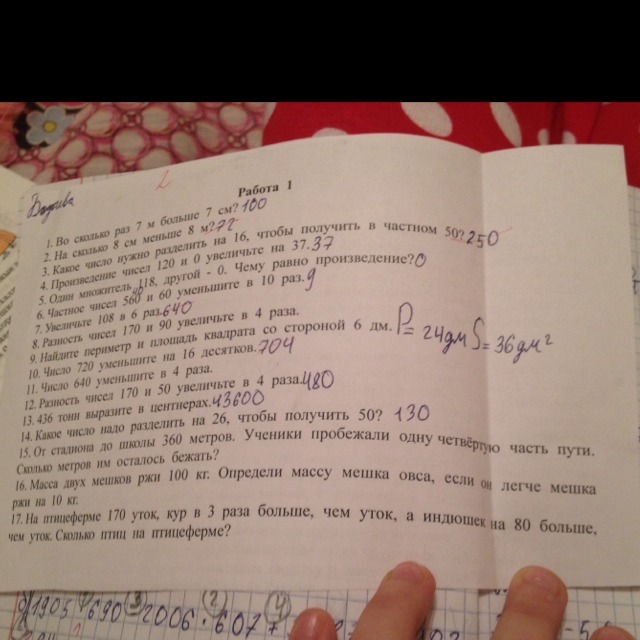 2
Работа 1
1. Во сколько раз 7 м больше 7 см? 100
2. На сколько 8 см меньше 8 м? 72
3. Какое число нужно разделить на 16, чтобы получить в частном 50? 250
4. Произведение чисел 120 и 0 увеличьте на 37. 37
5. Один множитель 18, другой - 0. Чему равно произведение? 0
6. Частное чисел 560 и 60 уменьшите в 10 раз. 9
7. Увеличьте 108 в 6 раз. 640
8. Разность чисел 170 и 90 увеличьте в 4 раза.
9. Найдите периметр и площадь квадрата со стороной 6 дм. P= 24дм S= 36дм²
10. Число 720 уменьшите на 16 десятков. 704
11. Число 640 уменьшите в 4 раза.
12. Разность чисел 170 и 50 увеличьте в 4 раза. 480
13. 436 тонн выразите в центнерах. 43600
14. Какое число надо разделить на 26, чтобы получить 50? 130
15. От стадиона до школы 360 метров. Ученики пробежали одну четвёртую часть пути.
Сколько метров им осталось бежать?
16. Масса двух мешков ржи 100 кг. Определи массу мешка овса, если он легче мешка
ржи на 10 кг.
17. На птицеферме 170 уток, кур в 3 раза больше, чем уток, а индюшек на 80 больше,
чем уток. Сколько птиц на птицеферме?
1905 690 2006 · 607